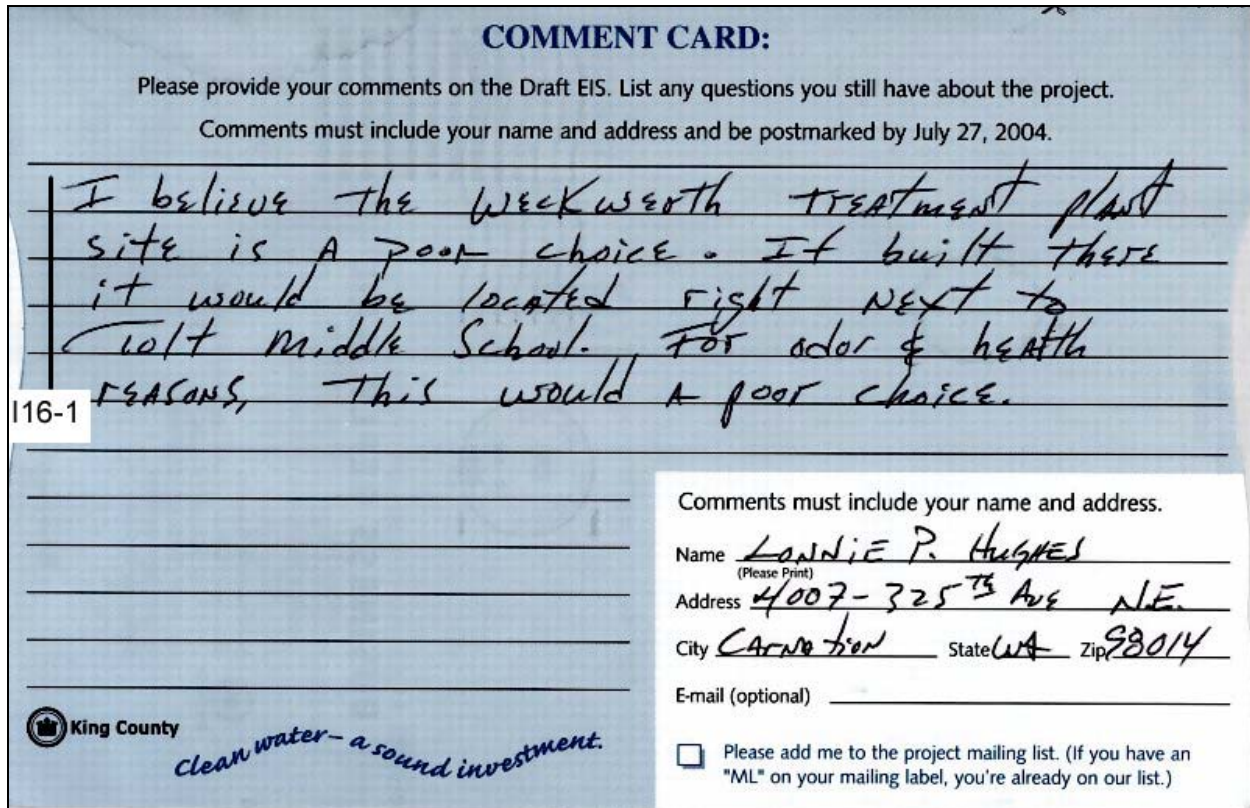 COMMENT CARD:
Please provide your comments on the Draft EIS. List any questions you still have about the project.
Comments must include your name and address and be postmarked by July 27, 2004.
I believe the Weckwerth treatment plant
site is a poor choice. If built there
it would be located right next to
Tolt Middle School. For odor & health
reasons, this would a poor choice.
I16-1
Comments must include your name and address.
Name Lonnie P. Hughes
(Please Print)
Address 4007-325th Ave N.E.
City Carnation State WA Zip 98014
E-mail (optional)
King County
Clean water – a sound investment.
Please add me to the project mailing list. (If you have an
"ML" on your mailing label, you're already on our list.)